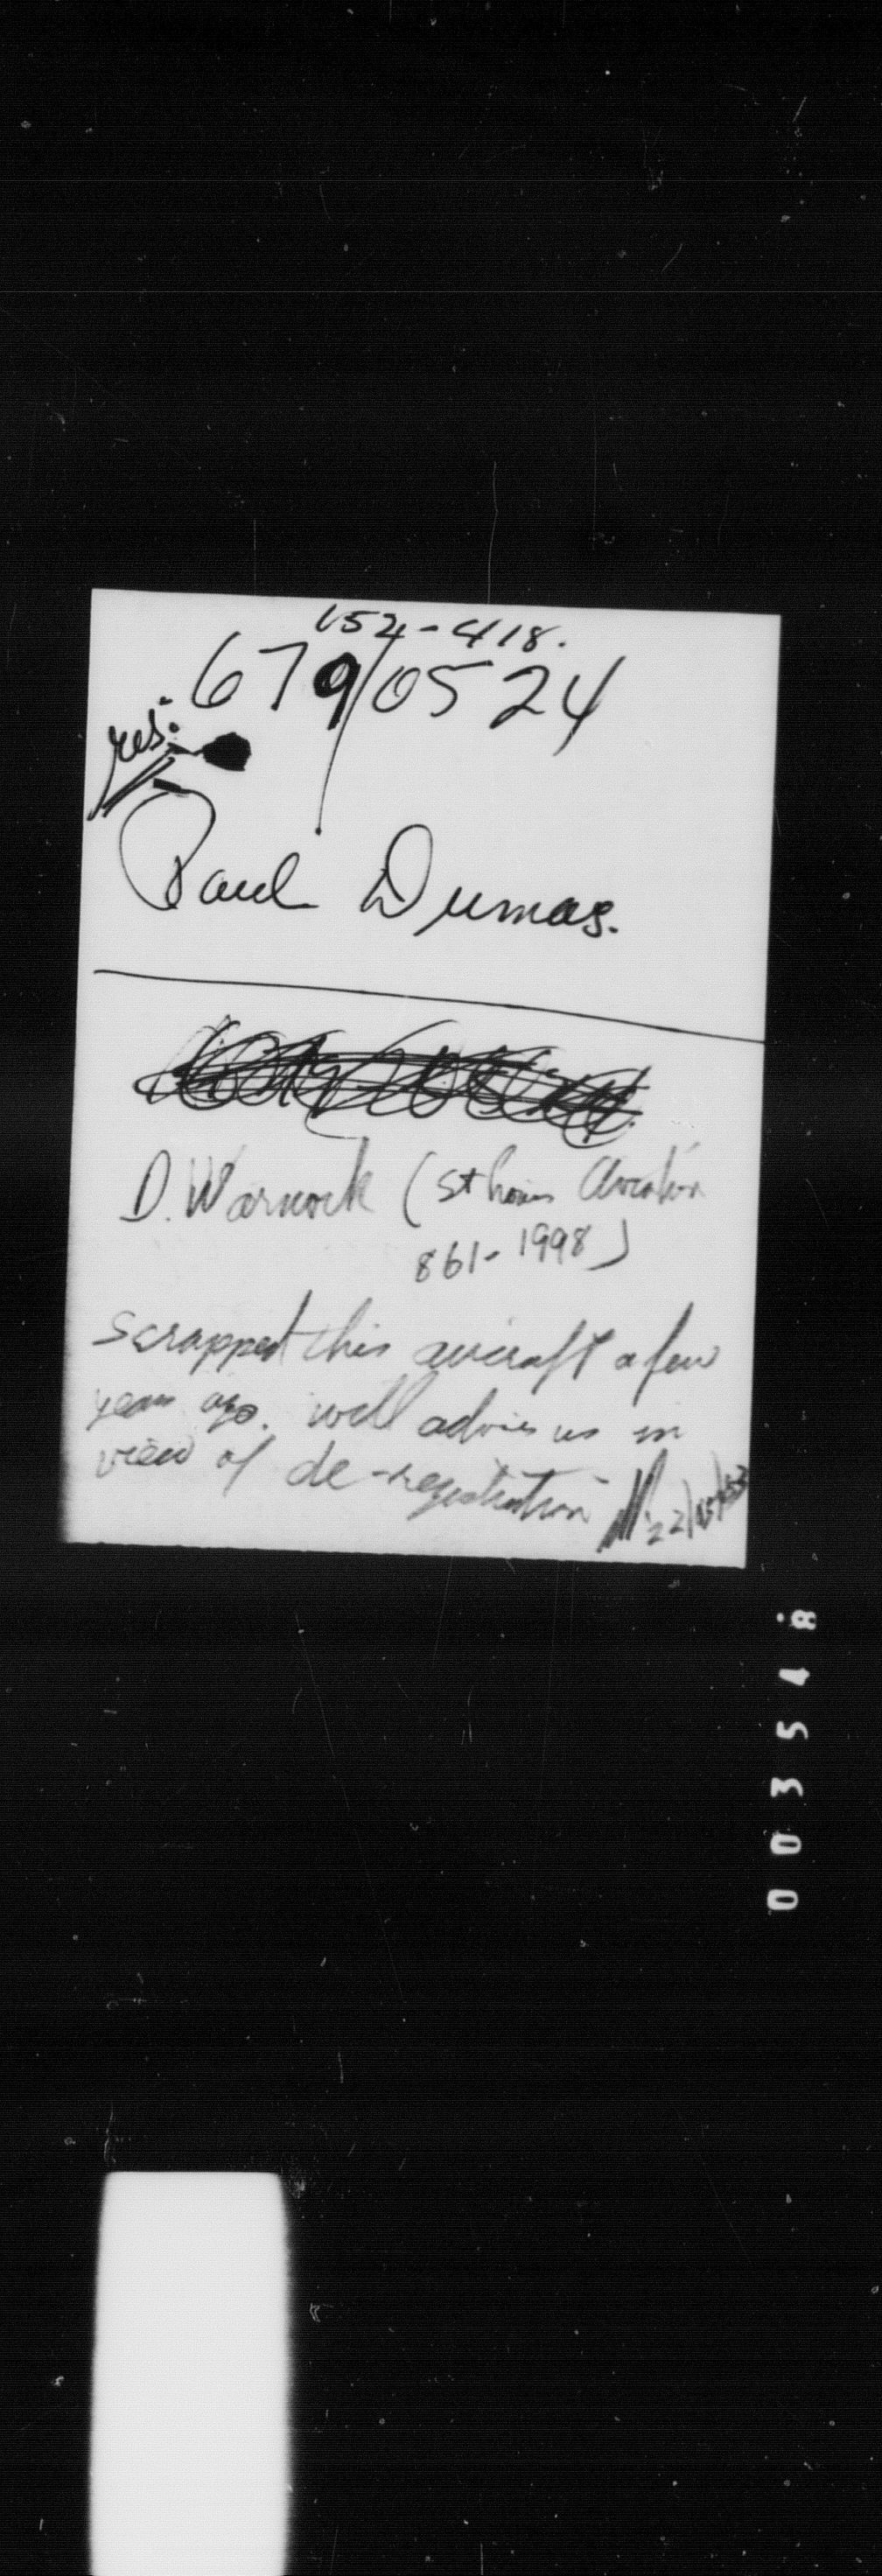 152-418.
679/0524
res:
Paul Dumas.
D. Warnock (St Louis Aviation
861-1998)
scrapped this aircraft a few
years ago. will advise us in
view of de-registration
003548